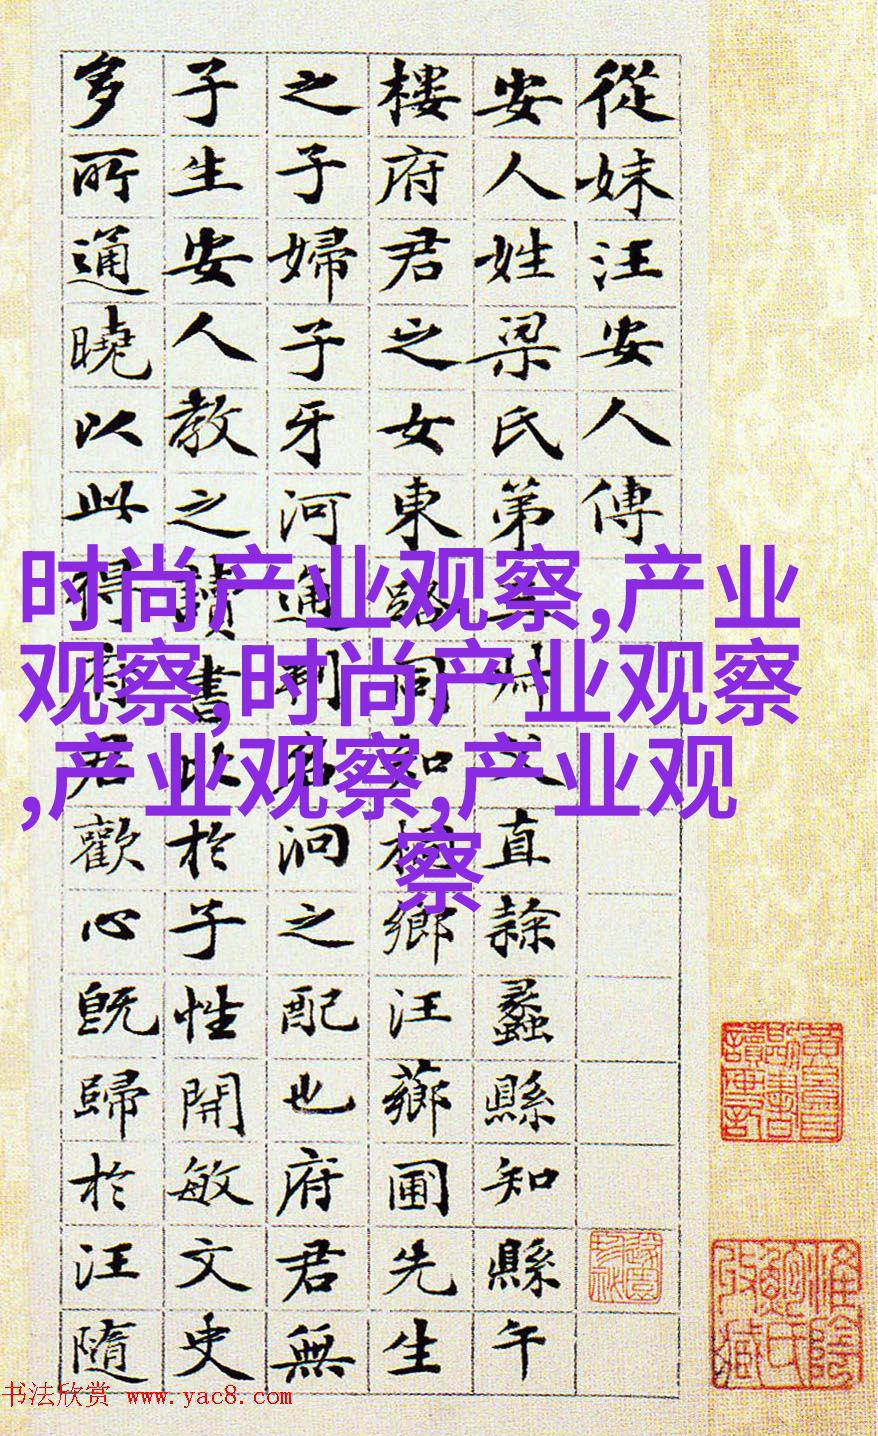 從妹汪安人傳
安人姓梁氏弟父直隸蠡縣知縣午
樓府君之女東路同知桐鄉汪薌圃先生
之子婦子牙河通判名泂之配也府君無
子生安人教之讀書以於子性開敏文史
多所通曉以此得府君歡心既歸於汪隨
时尚产业观察,产业
观察,时尚产业观察
,产业观察,产业观
察
书法欣赏 www.yac8.com